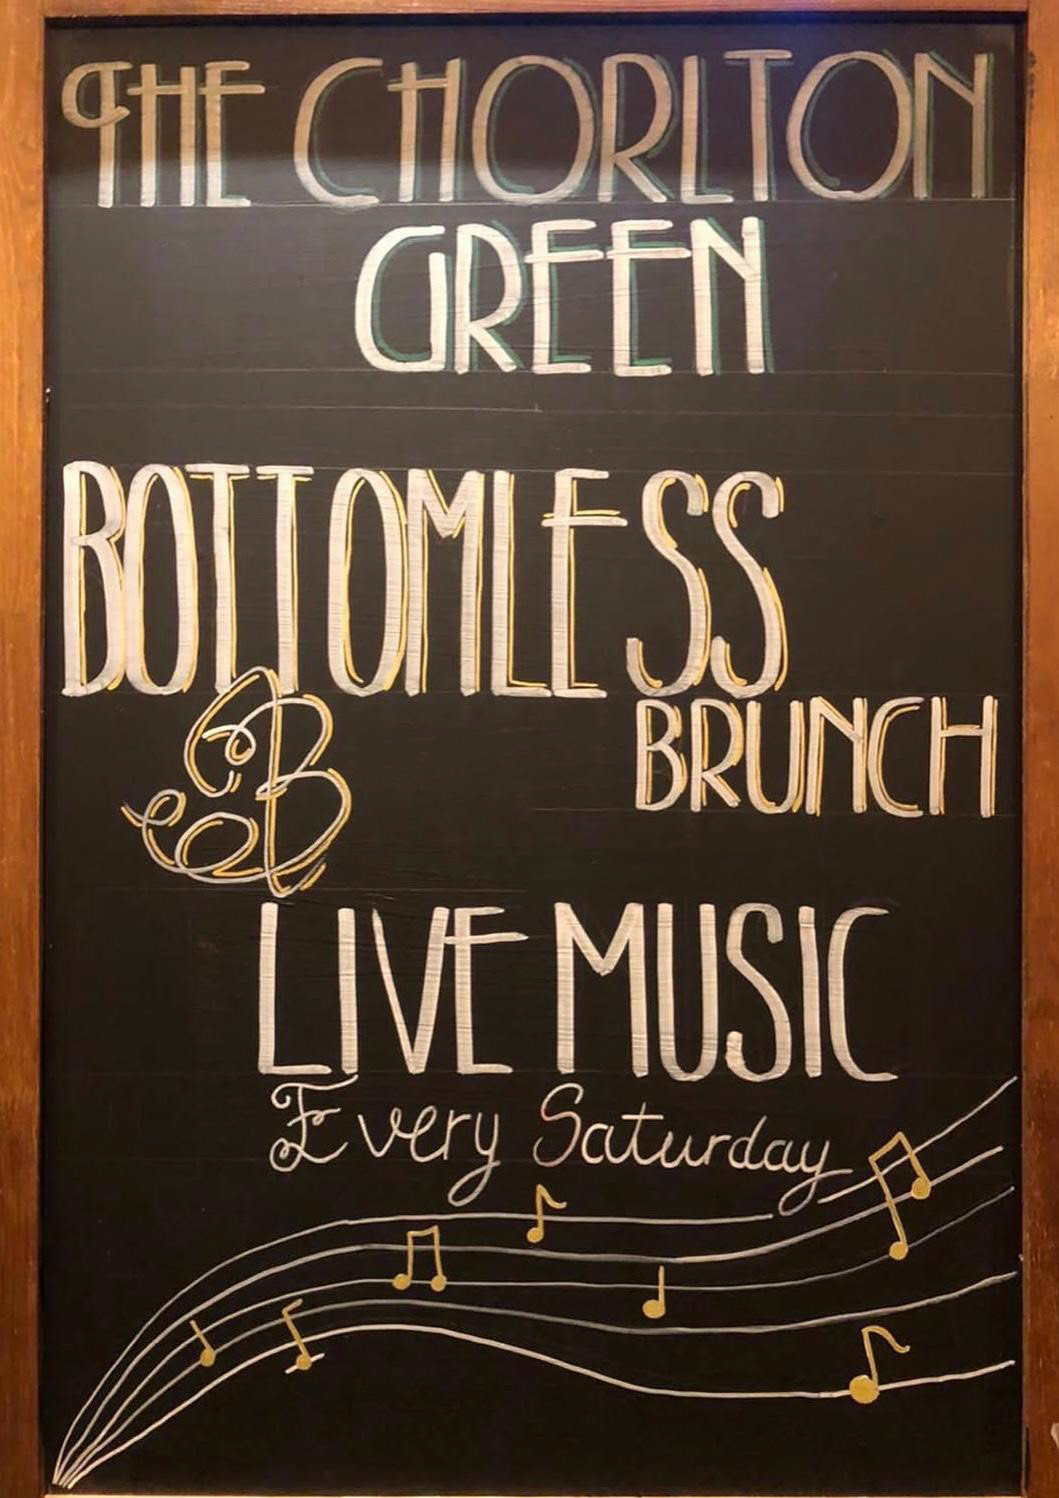 THE CHORLTON
GREEN
BOTTOMLESS
BRUNCH
B
LIVE MUSIC
Every Saturday